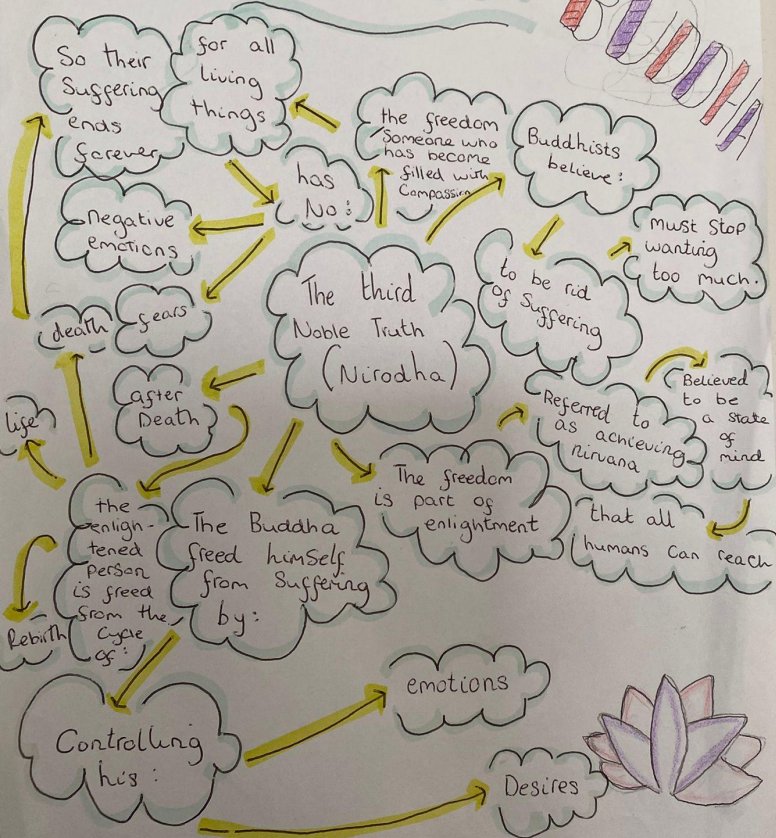 BUDDHA
So their
Suffering
ends
forever
for all
living
things
the freedom
Someone who
has become
filled with
Compassion
Buddhists
believe:
has
No:
negative
emotions
must stop
wanting
too much.
to be rid
of Suffering
The third
Noble Truth
(Nirodha)
death
fears
after
Death
life
Believed
to be
a state
of
mind
Referred to
as achieving
nirvana
The freedom
is part of
enlightment
that all
humans can reach
the
enligh-
tened
person
is freed
from the
Cycle
of:
The Buddha
freed himself
from Suffering
by:
Rebirth
emotions
Controlling
his:
Desires